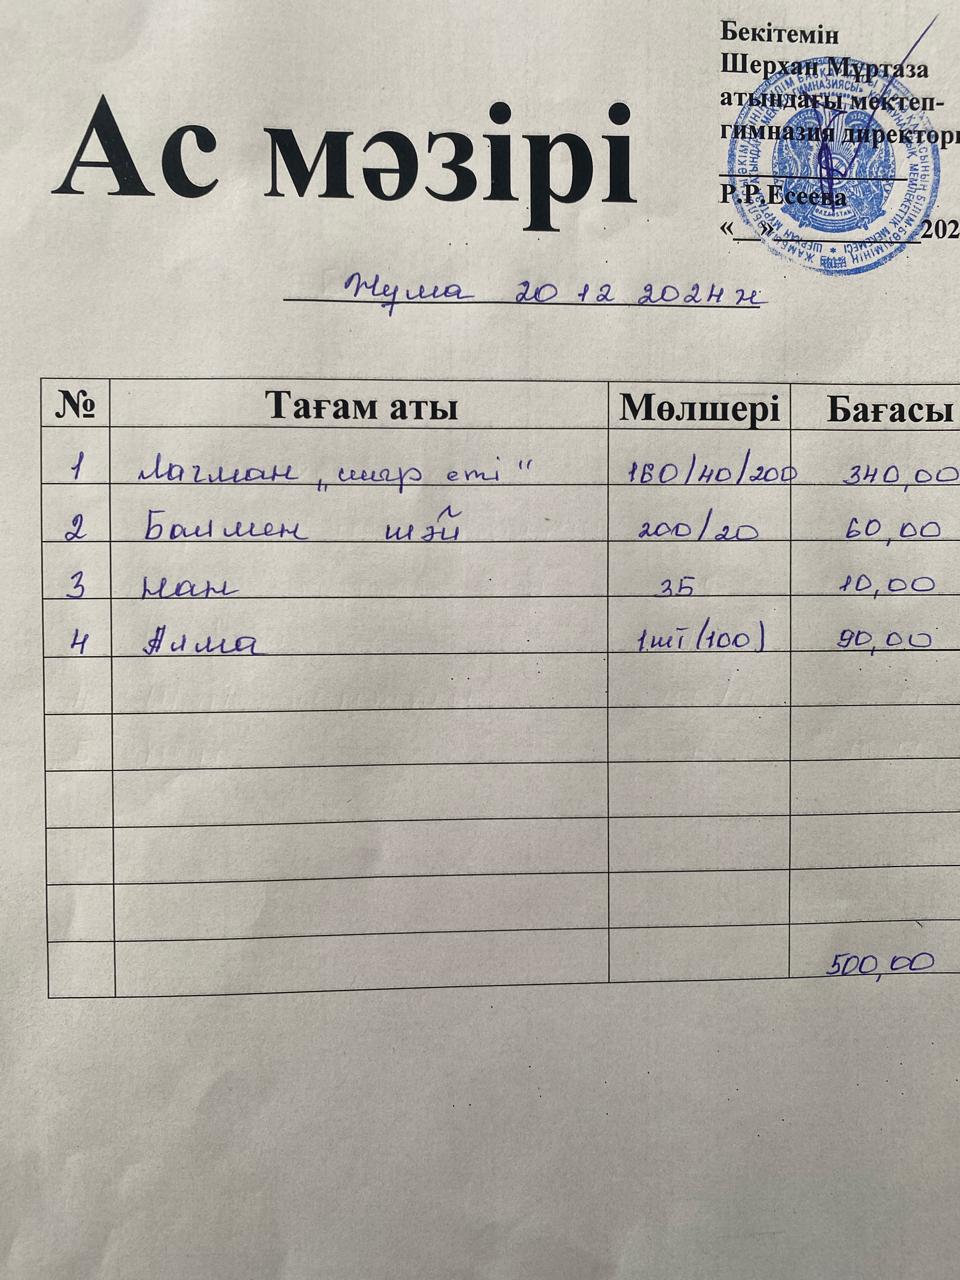 Бекітемін
Шерхан Мұртаза
атындағы мектеп-
гимназия директоры
Р.Р.Есеева
«__»____________202
Ас мәзірі
Жұма 20 12 2024 ж
№ Тағам аты Мөлшері Бағасы
1 Лагман „сиыр еті“ 160/40/200 340,00
2 Балмен шәй 200/20 60,00
3 нан 35 10,00
4 Алма 1шт (100) 90,00
500,00